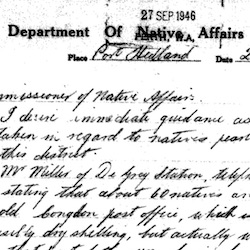 27 SEP 1946
Department Of Native Affairs
Place Port Hedland Date 2
mmissioner of Native Affair
I desire immediate guidance as
taken in regard to natives pear
this district.
Mr Millis of De Grey Station, teleph
stating that about 60 natives an
old Condon post office, which
dry shelling, but actually